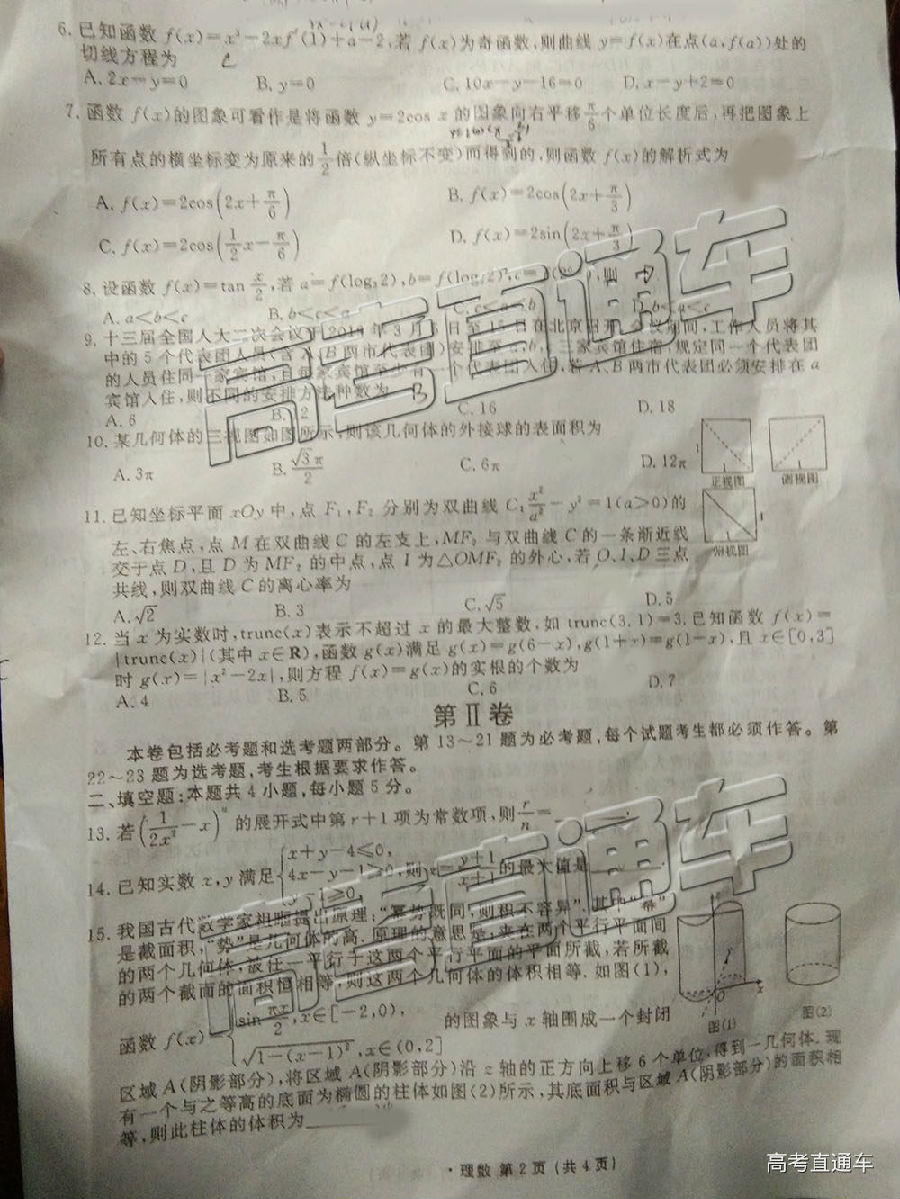 6. 已知函数 f(x)=x³-2xf′(1)+a-2,若 f(x)为奇函数,则曲线 y=f(x)在点(a,f(a))处的
切线方程为
A. 2x-y=0 B. y=0 C. 10x-y-16=0 D. x-y+2=0
7. 函数 f(x)的图象可看作是将函数 y=2cos x 的图象向右平移 个单位长度后,再把图象上
所有点的横坐标变为原来的 1/2 倍(纵坐标不变)而得到的,则函数 f(x)的解析式为
A. f(x)=2cos(2x+π/6) B. f(x)=2cos(2x+π/3)
C. f(x)=2cos(1/2 x-π/6) D. f(x)=2sin(2x+π/3)
8. 设函数 f(x)=tan x/2,若 a=f(log₃2),b=f(log 2),c=f( ),则
A. a<b<c B. b<c<a C. c<a<b D. b<a<c
9. 十三届全国人大二次会议于2019年3月5日至15日在北京召开,会议期间,工作人员将其
中的5个代表团人员(含A,B两市代表团)安排至a,b,c三家宾馆住宿,规定同一个代表团
的人员住同一家宾馆,且每家宾馆至少有一个代表团入住,若A,B两市代表团必须安排在a
宾馆入住,则不同的安排方法种数为
A. 6 B. 12 C. 16 D. 18
10. 某几何体的三视图如图所示,则该几何体的外接球的表面积为
A. 3π B. √3π/2 C. 6π D. 12π
正视图 侧视图
俯视图
11. 已知坐标平面 xOy 中,点 F₁,F₂ 分别为双曲线 C: x²/a²-y²=1(a>0)的
左、右焦点,点 M 在双曲线 C 的左支上,MF₂ 与双曲线 C 的一条渐近线
交于点 D,且 D 为 MF₂ 的中点,点 I 为△OMF₂ 的外心,若 O、I、D 三点
共线,则双曲线 C 的离心率为
A. √2 B. 3 C. √5 D. 5
12. 当 x 为实数时,trunc(x)表示不超过 x 的最大整数,如 trunc(3.1)=3.已知函数 f(x)=
|trunc(x)|(其中 x∈R),函数 g(x)满足 g(x)=g(6-x),g(1+x)=g(1-x),且 x∈[0,3]
时 g(x)=|x²-2x|,则方程 f(x)=g(x)的实根的个数为
A. 4 B. 5 C. 6 D. 7
第Ⅱ卷
本卷包括必考题和选考题两部分。第 13~21 题为必考题,每个试题考生都必须作答。第
22~23 题为选考题,考生根据要求作答。
二、填空题:本题共 4 小题,每小题 5 分。
13. 若(1/2x³-x)ⁿ 的展开式中第 r+1 项为常数项,则 r/n=
14. 已知实数 x,y 满足{x+y-4≤0, 4x-y-1≥0, y-1≥0,则 z=y+1/x+1 的最大值是
15. 我国古代数学家祖暅提出原理:“幂势既同,则积不容异”.其中“幂”
是截面积,“势”是几何体的高.原理的意思是:夹在两个平行平面间
的两个几何体,被任一平行于这两个平行平面的平面所截,若所截
的两个截面的面积恒相等,则这两个几何体的体积相等.如图(1),
函数 f(x)={sin πx/2,x∈[-2,0), √1-(x-1)²,x∈(0,2] 的图象与 x 轴围成一个封闭
图(1) 图(2)
区域 A(阴影部分),将区域 A(阴影部分)沿 z 轴的正方向上移 6 个单位,得到一几何体.现
有一个与之等高的底面为椭圆的柱体如图(2)所示,其底面积与区域 A(阴影部分)的面积相
等,则此柱体的体积为
·理数 第 2 页(共 4 页)
高考直通车
高考直通车
高考直通车